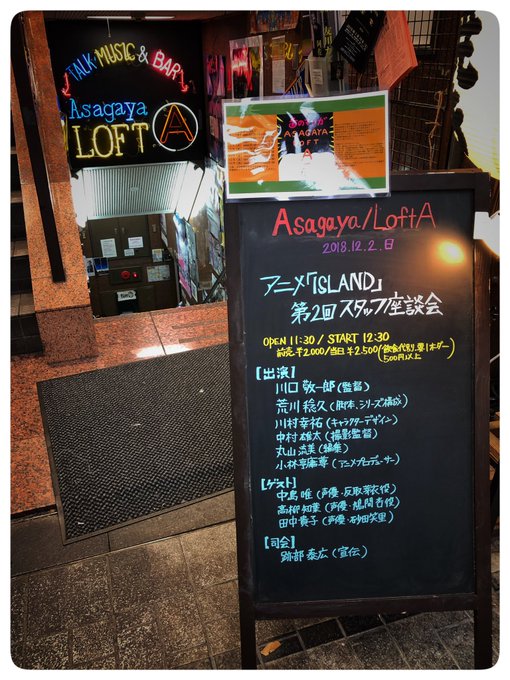 TALK・MUSIC & BAR
Asagaya
LOFT A
ASAGAYA
LOFT
A
Asagaya/LoftA
2018.12.2.日
アニメ「ISLAND」
第2回スタッフ座談会
OPEN 11:30 / START 12:30
前売¥2000/当日¥2,500(飲食代別、要1オーダー
500円以上)
【出演】
川口敬一郎(監督)
荒川稔久(脚本、シリーズ構成)
川村幸祐(キャラクターデザイン)
中村雄太(撮影監督)
丸山流美(編集)
小林亨藤尊(アニメプロデューサー)
【ゲスト】
中島唯(声優・反取芽衣役)
高柳知葉(声優・鳩間杏役)
田中貴子(声優・砂田笑里)
【司会】
跡部泰広(宣伝)